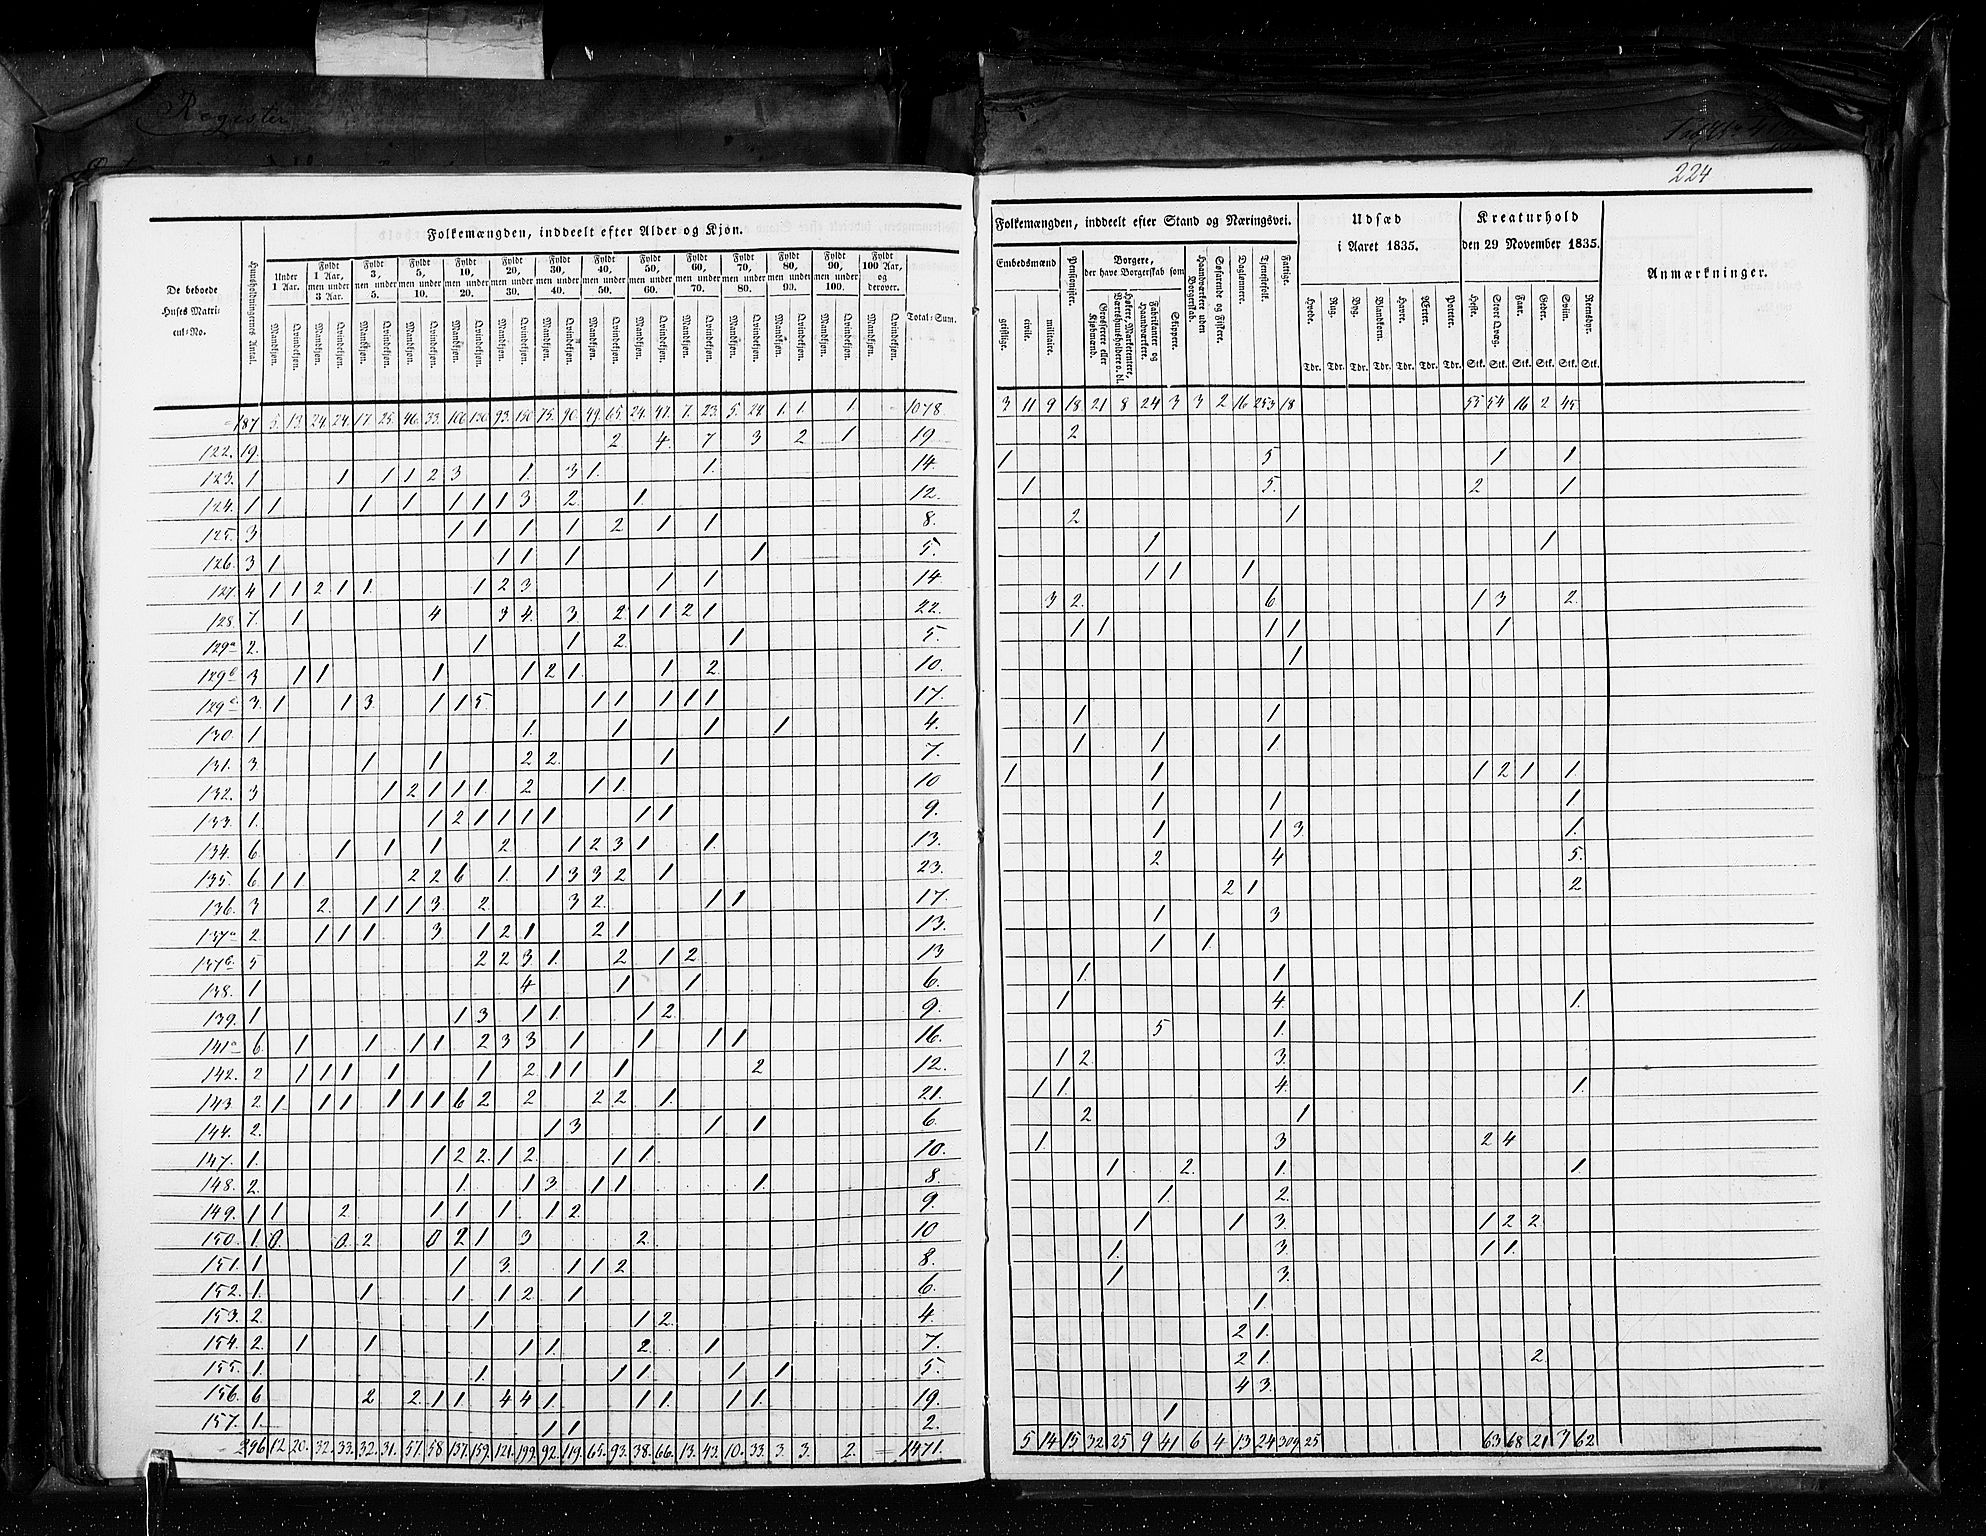 Register
224
Folkemængden, inddeelt efter Alder og Kjøn.
De beboede Huses Matricul-No.
Huusholdningernes Antal.
Under 1 Aar.
Fyldt 1 Aar, men under 3 Aar.
Fyldt 3, men under 5.
Fyldt 5, men under 10.
Fyldt 10, men under 20.
Fyldt 20, men under 30.
Fyldt 30, men under 40.
Fyldt 40, men under 50.
Fyldt 50, men under 60.
Fyldt 60, men under 70.
Fyldt 70, men under 80.
Fyldt 80, men under 90.
Fyldt 90, men under 100.
Fyldt 100 Aar, og derover.
Mandkjøn. Qvindekjøn.
Total-Sum.
187 5. 13. 24. 24. 17. 25. 46. 33. 106. 130. 93. 150. 75. 90. 49. 65. 24. 41. 7. 23. 5. 24. 1. 1. 1. 1078.
122. 19. 2 4. 7 3 2 1 19
123. 1 1 1 1 2 3 1. 3 1. 1. 14.
124. 1 1 1 1 1 1 1 3 2. 1. 12.
125. 3 1 1 1 1 2 1 1 8.
126. 3 1 1 1 1 1 5.
127. 4 1 1 2 1 1. 1 2 3 1 1 14
128. 7. 1 4 3 4. 3 2 1 1 2 1 22.
129a 2. 1 1 2. 1 5.
129b 3 1 1 1 1 2 1. 1 2. 10.
129c. 3. 1 1 3. 1 1 5 1 1 1 1 1 17.
130. 1 1. 1 1 1 4.
131. 3 1 1 2 2. 1 7.
132. 3 1 2 1 1 1 2 1 1. 10
133. 1. 1 2 1 1 1 1 1 1 9.
134. 6. 1 1 1 2 1 2 3 1 1. 13.
135. 6 1 1 2 2 6 1. 1 3 3 2 1 23.
136. 3 2. 1 1 1 3. 2 3 2. 1 1 17.
137a 2. 1 1 1 3 1 2 1 2 1 13.
137b. 5 2 2 3 1. 2 1 2 13
138. 1 4 1 1 6.
139. 1 1 3 1 1 1 2. 9.
141a 6. 1 1 1 1 2 3 3 1 1 1 1 16.
142. 2 1 1 1 1 1 2 1 1 1 2 12.
143. 2. 1 1 1 1 1 1 6 2 2 2 2 1. 21.
144. 2. 1 3 1 1 6.
147. 1. 1 2 2 1 2 1 1. 10.
148. 2. 1. 1 3. 1 1 1. 8.
149. 1 1 2 1 1 1 1 2. 9.
150. 1. 0. 0. 2 0 2 1 3 2. 10
151. 1 1 3. 1 1 2 8.
152. 1. 1 1 1 2 1 6.
153. 2. 1 1 2. 4.
154. 2. 1 1 1 1. 2. 1 7.
155. 1. 1 1 1 1 1 5.
156. 6 2 2. 1 1 4 4 1. 1 1 1 1. 19.
157. 1. 1 1 2.
296 12. 20. 32. 33. 32. 31. 57. 58 137. 159. 121. 199. 92. 119. 65. 93. 38. 66. 13. 43. 10. 33. 3. 3. 2. 1471.
Folkemængden, inddeelt efter Stand og Næringsvei.
Embedsmænd
geistlige. civile. militaire.
Pensionister.
Borgere, der have Borgerskab som
Grosserere eller Kjøbmænd.
Høkere, Marketentere, Værtshuusholdere o. dl.
Fabrikanter og Haandværkere.
Skippere.
Haandværkere uden Borgerskab.
Søfarende og Fiskere.
Dagleiere.
Tjenestefolk.
Fattige.
Udsæd i Aaret 1835.
Hvede. Rug. Byg. Blandkorn. Havre. Erter. Poteter.
Tdr. Tdr. Tdr. Tdr. Tdr. Tdr. Tdr.
Kreaturhold den 29 November 1835.
Heste. Stort Qvæg. Faar. Geder. Sviin. Rensdyr.
Stk. Stk. Stk. Stk. Stk. Stk.
Anmærkninger.
3 11 9 18 21 8 24 3 3 2 16 253 18 55 54 16 2 45
2
1 5 1 1.
1 5. 2 1
2 1
1 1
1 1 1
3 2. 6. 1 3 2.
1 1 1 1 1
1
1 1
1 1 1.
1 1 1 2 1 1
1 1 1
1 1 3. 1.
2 4 5.
2 1 2
1 3
1 1.
1. 1
1 4. 1.
5 1.
1 2. 3.
1 1. 4. 1.
2 1
1. 3 2 4
1 2. 1. 1
1. 2.
1 1 3. 1 2 2
1. 3. 1 1.
1 3.
1.
2 1.
2 1. 2.
4 3.
1
5 14 15 32 25 9 41 6 4 13 24 309 25 63 68 21 7 62